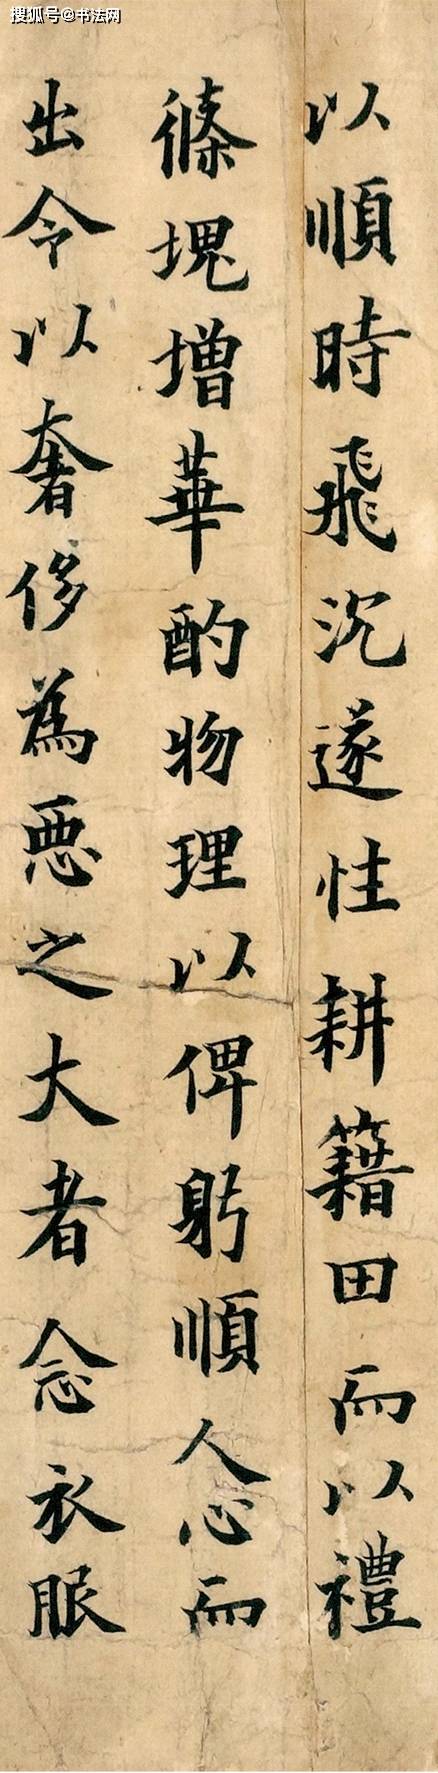 搜狐号@书法网
以順時飛沉遂性耕籍田而以禮
滌塊增華酌物理以俾躬順人心而
出令以奢侈為惡之大者念衣服